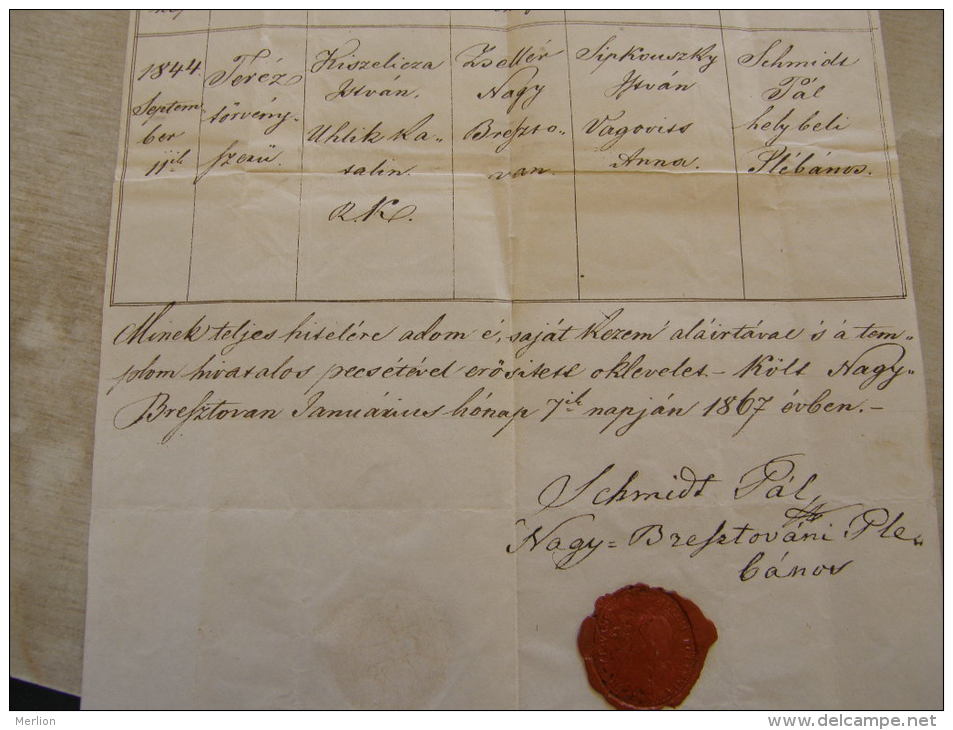 1844.
Septem-
ber
11ik
Teréz
törvény-
szerü.
Kiszelicza
István.
Uhlik Ka-
talin.
R. K.
Zsellér
Nagy
Breszto-
van.
Sipkouszky
István
Vagoviss
Anna.
Schmidt
Pál
helybeli
Plébános.
Minek teljes hitelére adom é, saját kezem aláirtával és á tem-
plom hivatalos pecsétével erősitett oklevelet. – Költ Nagy-
Bresztovan Januárius hónap 7ik napján 1867 évben. –
Schmidt Pál,
Nagy-Bresztováni Ple-
bános
Merlion
www.delcampe.net